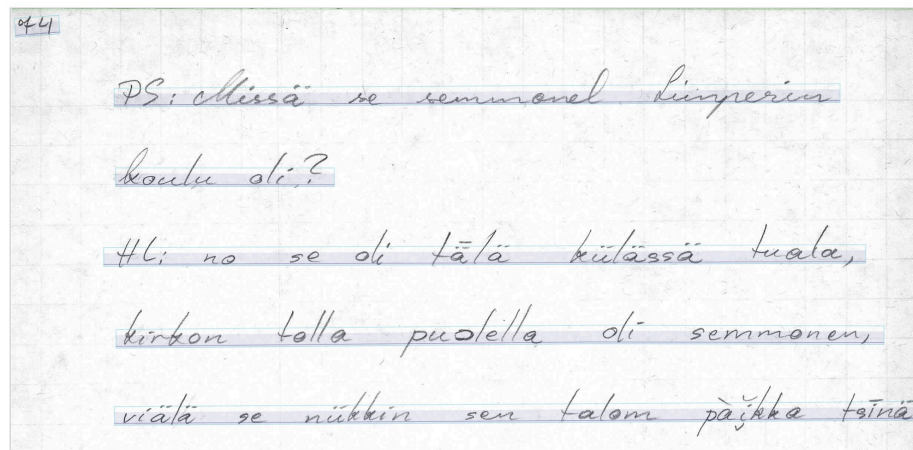 74
PS: Missä se semmonel Limperin
koulu oli?
HL: no se oli tälä külässä tuala,
kirkon tolla puolella oli semmonen,
viälä se nükkin sen talom päi̮kka tsinä